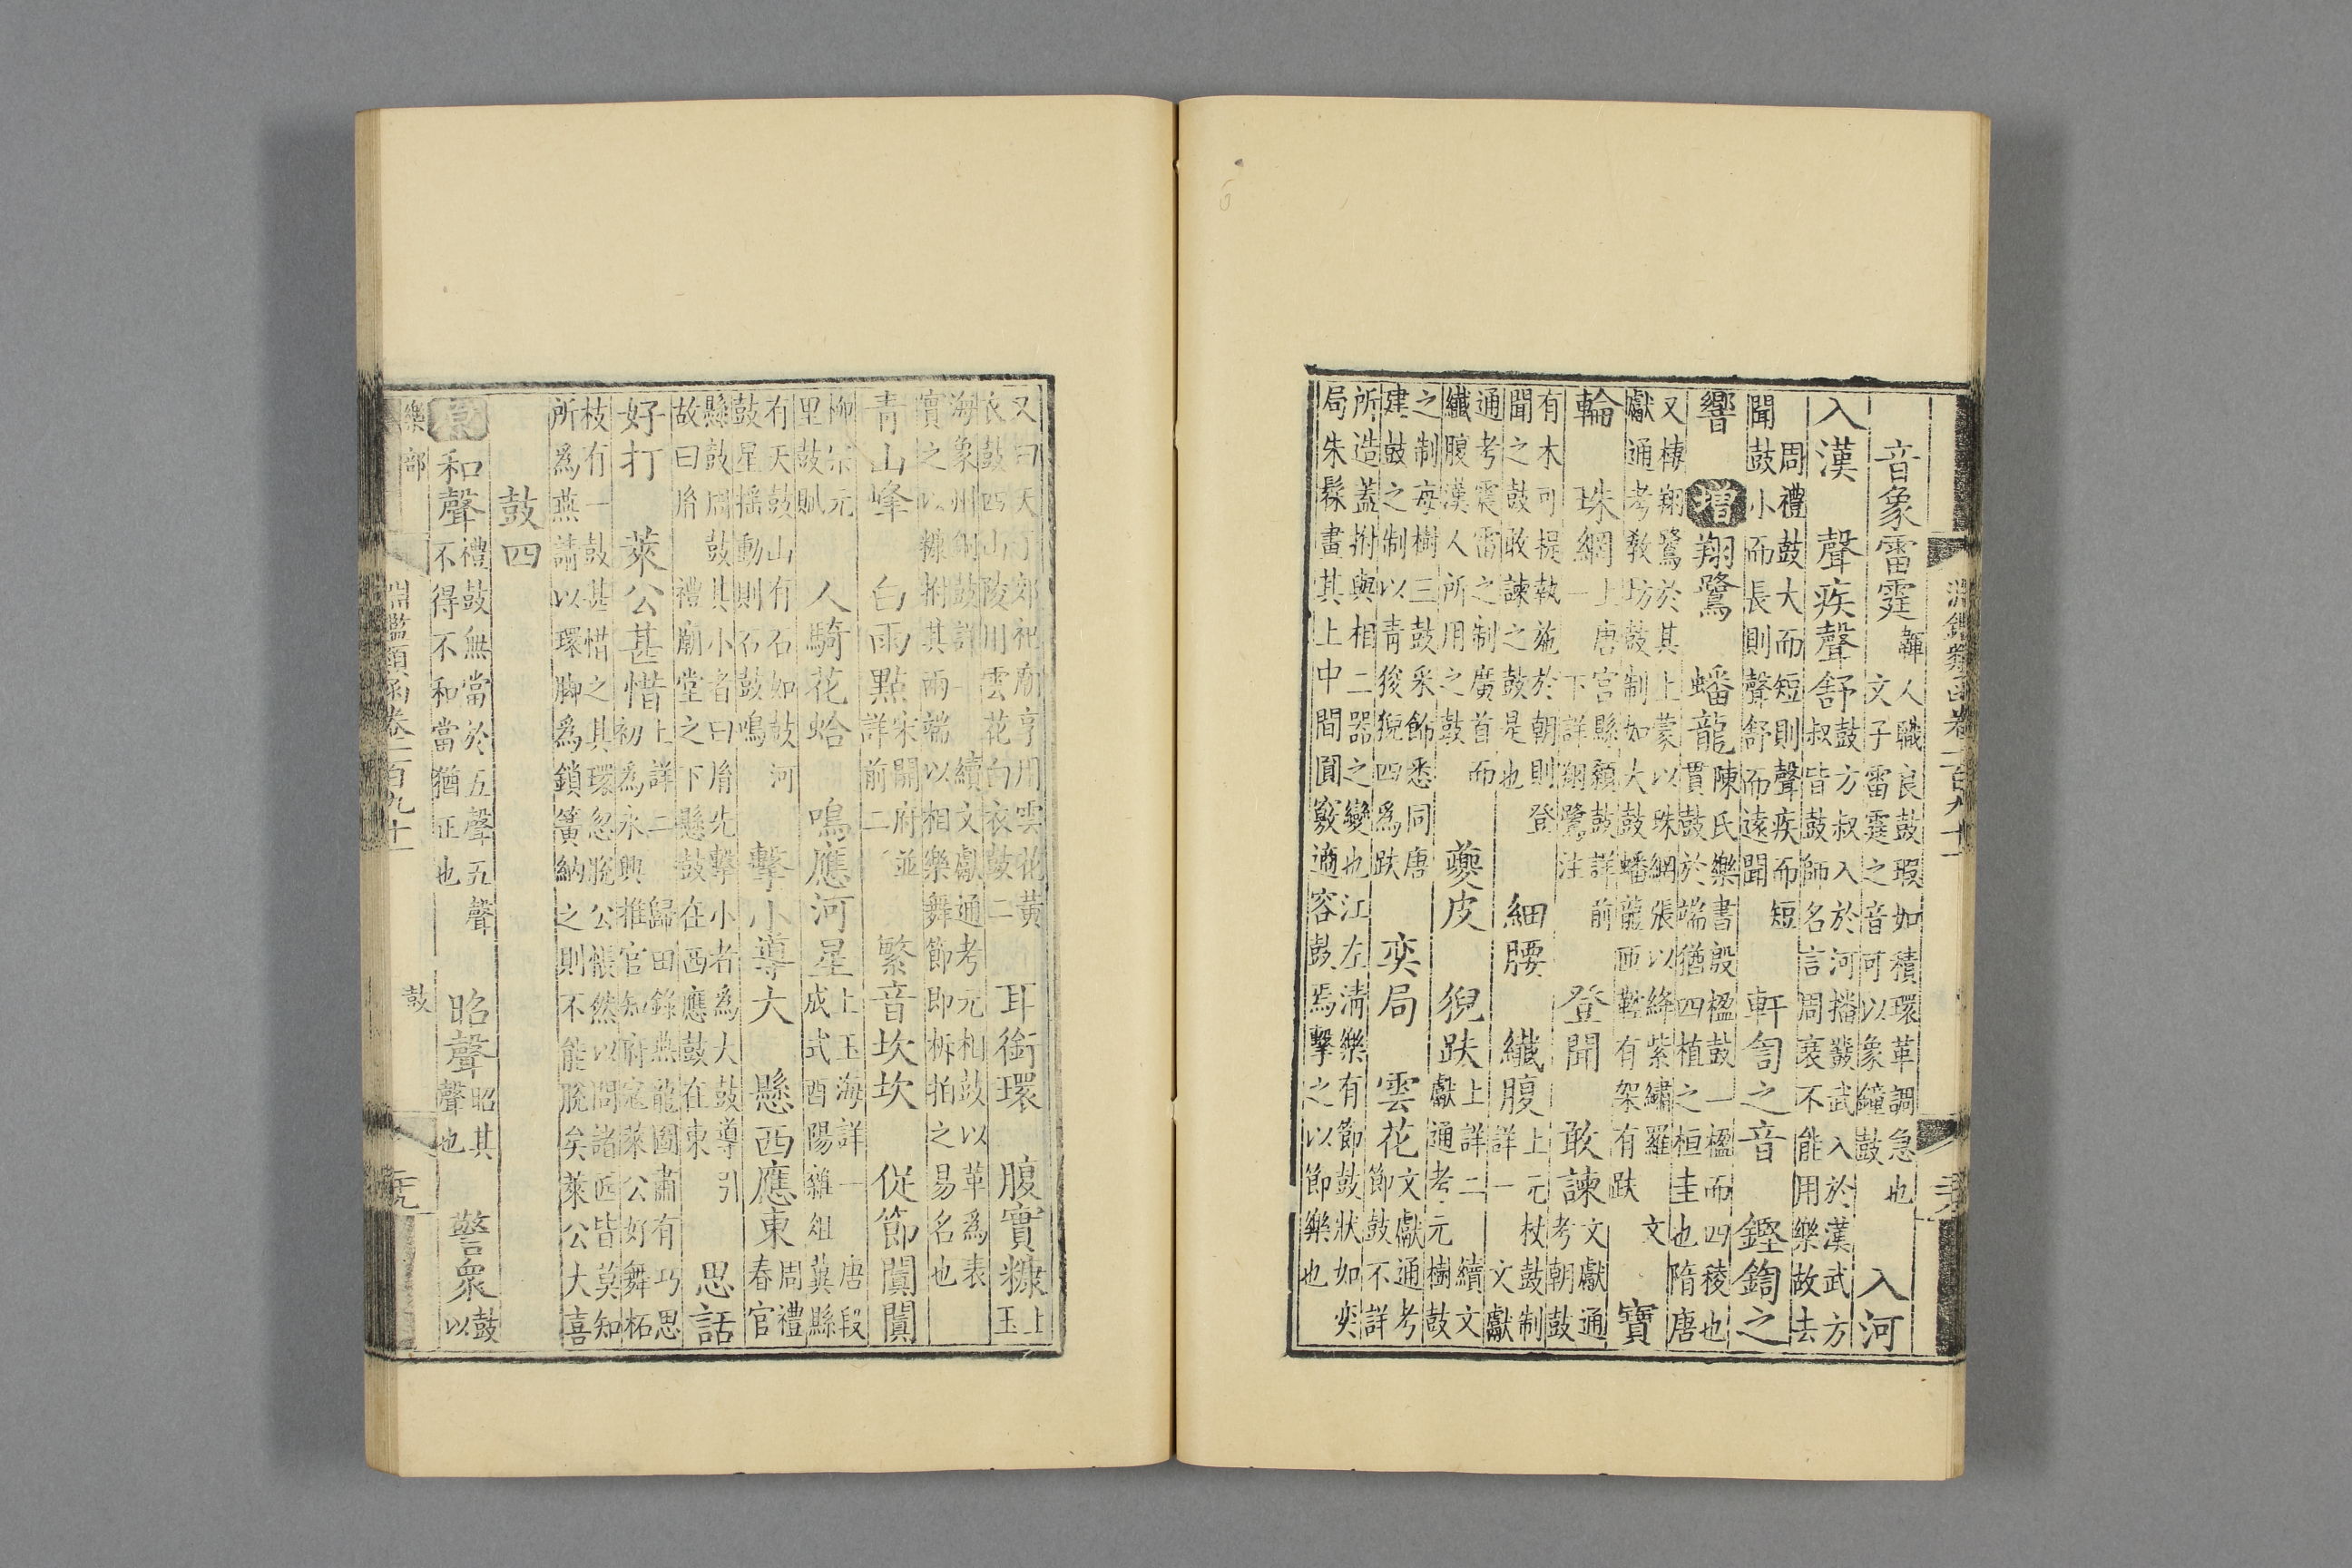 淵鑑類函卷一百九十一
音象雷霆 韗人職良鼓瑕如積環革調急也文子雷霆之音可以象鐘鼓 入河
入漢 聲疾聲舒 鼓方叔入於河播鼗武入於漢武方叔皆鼓師名言周衰不能用樂故去
周禮鼓大而短則聲疾而短聞鼓小而長則聲舒而遠聞 軒訇之音 鏗鍧之
響 增翔鷺 蟠龍 陳氏樂書殷楹鼓一楹而四稜也貫鼓於端猶四植之桓圭也隋唐
又棲翔鷺於其上蒙以珠網張以絳紫繡羅 文獻通考敎坊鼓制如大鼓蟠龍匝鞓有架有趺 寶
輪 珠網 上唐宮縣額鼓詳前一下詳翔鷺注 登聞 敢諫 文獻通考朝鼓
有木可提執施於朝則登聞之鼓敢諫之鼓是也 細腰 纖腹 上元杖鼓制詳一文獻
通考震雷之制廣首而纖腹漢人所用之鼓 夔皮 猊趺 上詳二續文獻通考元樹鼓
之制每樹三鼓采飾悉同唐建鼓之制以青狻猊四為趺 奕局 雲花 文獻通考節鼓不詳
所造蓋拊與相二器之變也江左清樂有節鼓狀如奕局朱髹畫其上中間圓竅適容鼓焉擊之以節樂也
又曰天子郊祀廟亨用雲花黃衣鼓四山陵用雲花白衣鼓二 耳銜環 腹實糠 上玉
海象州銅鼓詳一續文獻通考元相鼓以革為表實之以糠拊其兩端以相樂舞節即柝拍之易名也
青山峰 白雨點 宋開府並詳前二 繁音坎坎 從節闐闐
柳宗元里鼓賦 人騎花蛤 鳴應河星 上玉海詳一唐段成式酉陽雜俎冀縣
有天鼓山有石如鼓河鼓星搖動則石鼓鳴 擊小導大 懸西應東 周禮春官
縣鼓周鼓其小者曰胤先擊小者為大鼓導引故曰胤 禮廟堂之下懸鼓在西應鼓在東 思話
好打 萊公甚惜 上詳二歸田錄燕龍圖肅有巧思初為永興推官知府寇萊公好舞柘
枝有一鼓甚惜之其環忽脫公悵然以問諸匠皆莫知所為燕請以環脚為鎖簧納之則不能脫矣萊公大喜
鼓四
原和聲 禮鼓無當於五聲五聲不得不和當猶正也 昭聲 昭其聲也 警衆 鼓以
樂部 鼓
淵鑑類函卷一百九十一